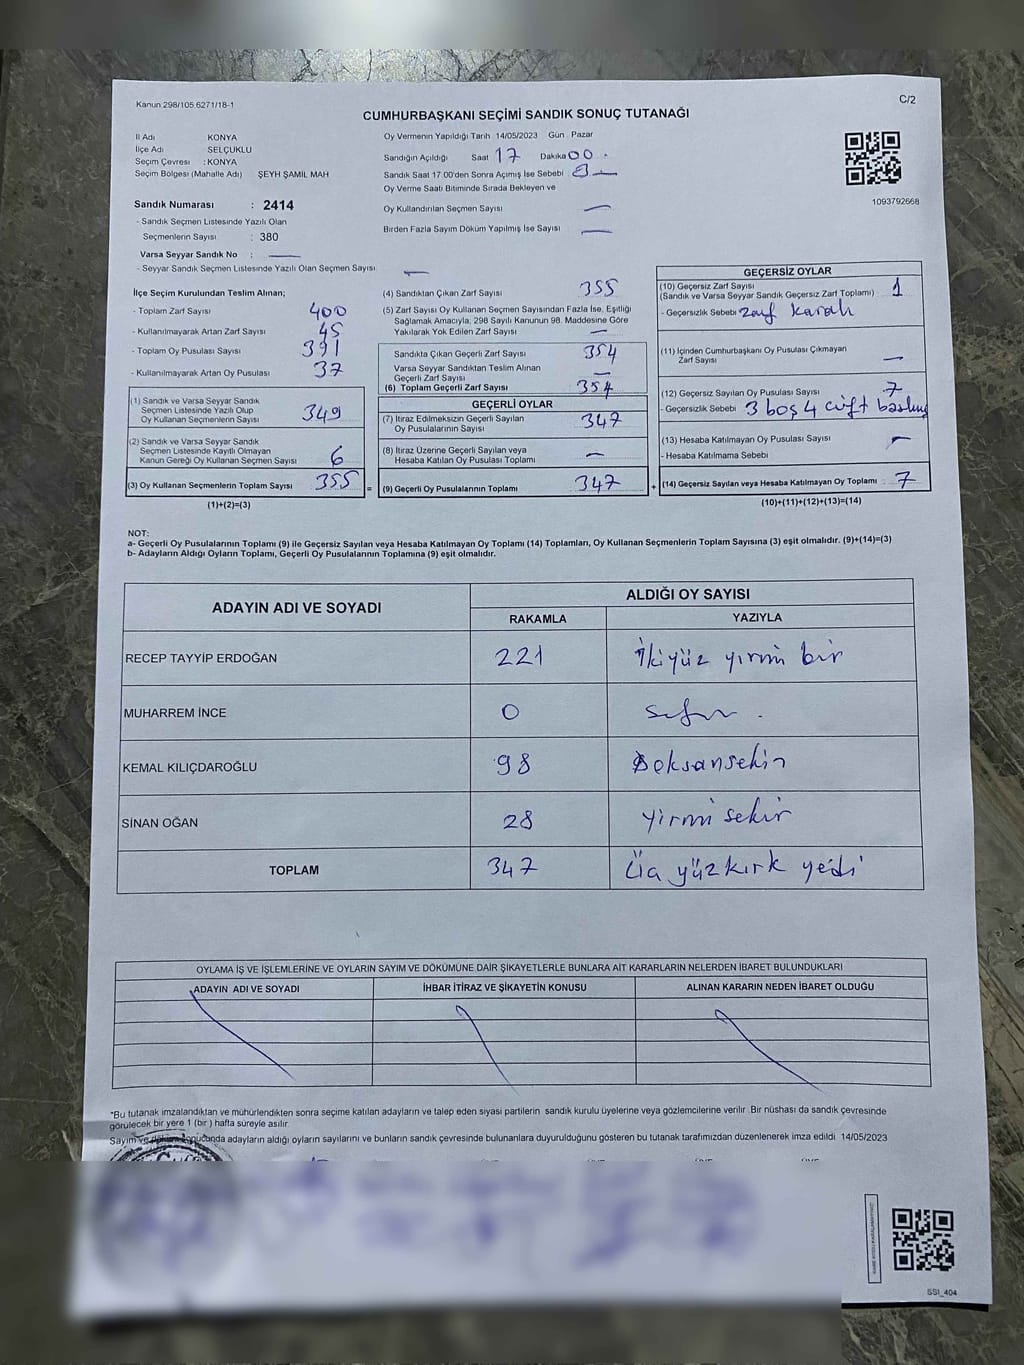 Kanun 298/105 6271/18-1
C/2
CUMHURBAŞKANI SEÇİMİ SANDIK SONUÇ TUTANAĞI
İl Adı KONYA
İlçe Adı SELÇUKLU
Seçim Çevresi : KONYA
Seçim Bölgesi (Mahalle Adı) ŞEYH ŞAMİL MAH
Sandık Numarası : 2414
- Sandık Seçmen Listesinde Yazılı Olan
Seçmenlerin Sayısı : 380
Varsa Seyyar Sandık No :
- Seyyar Sandık Seçmen Listesinde Yazılı Olan Seçmen Sayısı
Oy Vermenin Yapıldığı Tarih 14/05/2023 Gün . Pazar
Sandığın Açıldığı Saat 17 Dakika 00
Sandık Saat 17.00'den Sonra Açımış İse Sebebi
Oy Verme Saati Bitiminde Sırada Bekleyen ve
Oy Kullandırılan Seçmen Sayısı
Birden Fazla Sayım Döküm Yapılmış İse Sayısı
1093792668
İlçe Seçim Kurulundan Teslim Alınan;
- Toplam Zarf Sayısı 400
- Kullanılmayarak Artan Zarf Sayısı 45
- Toplam Oy Pusulası Sayısı 391
- Kullanılmayarak Artan Oy Pusulası 37
(1) Sandık ve Varsa Seyyar Sandık
Seçmen Listesinde Yazılı Olup
Oy Kullanan Seçmenlerin Sayısı 349
(2) Sandık ve Varsa Seyyar Sandık
Seçmen Listesinde Kayıtlı Olmayan
Kanun Gereği Oy Kullanan Seçmen Sayısı 6
(3) Oy Kullanan Seçmenlerin Toplam Sayısı 355 =
(1)+(2)=(3)
(4) Sandıktan Çıkan Zarf Sayısı 355
(5) Zarf Sayısı Oy Kullanan Seçmen Sayısından Fazla İse, Eşitliği
Sağlamak Amacıyla, 298 Sayılı Kanunun 98. Maddesine Göre
Yakılarak Yok Edilen Zarf Sayısı
Sandıkta Çıkan Geçerli Zarf Sayısı 354
Varsa Seyyar Sandıktan Teslim Alınan
Geçerli Zarf Sayısı
(6) Toplam Geçerli Zarf Sayısı 354
GEÇERLİ OYLAR
(7) İtiraz Edilmeksizin Geçerli Sayılan
Oy Pusulalarının Sayısı 347
(8) İtiraz Üzerine Geçerli Sayılan veya
Hesaba Katılan Oy Pusulası Toplamı
(9) Geçerli Oy Pusulalarının Toplamı 347 +
GEÇERSİZ OYLAR
(10) Geçersiz Zarf Sayısı
(Sandık ve Varsa Seyyar Sandık Geçersiz Zarf Toplamı) 1
- Geçersizlik Sebebi zarf karalı
(11) İçinden Cumhurbaşkanı Oy Pusulası Çıkmayan
Zarf Sayısı
(12) Geçersiz Sayılan Oy Pusulası Sayısı 7
- Geçersizlik Sebebi 3 boş 4 çift
(13) Hesaba Katılmayan Oy Pusulası Sayısı
- Hesaba Katılmama Sebebi
(14) Geçersiz Sayılan veya Hesaba Katılmayan Oy Toplamı : 7
(10)+(11)+(12)+(13)=(14)
NOT:
a- Geçerli Oy Pusulalarının Toplamı (9) ile Geçersiz Sayılan veya Hesaba Katılmayan Oy Toplamı (14) Toplamları, Oy Kullanan Seçmenlerin Toplam Sayısına (3) eşit olmalıdır. (9)+(14)=(3)
b- Adayların Aldığı Oyların Toplamı, Geçerli Oy Pusulalarının Toplamına (9) eşit olmalıdır.
ADAYIN ADI VE SOYADI ALDIĞI OY SAYISI
RAKAMLA YAZIYLA
RECEP TAYYİP ERDOĞAN 221 İkiyüz yirmi bir
MUHARREM İNCE 0 sıfır .
KEMAL KILIÇDAROĞLU 98 Doksansekiz
SİNAN OĞAN 28 yirmi sekiz
TOPLAM 347 Üç yüzkırk yedi
OYLAMA İŞ VE İŞLEMLERİNE VE OYLARIN SAYIM VE DÖKÜMÜNE DAİR ŞİKAYETLERLE BUNLARA AİT KARARLARIN NELERDEN İBARET BULUNDUKLARI
ADAYIN ADI VE SOYADI İHBAR İTİRAZ VE ŞİKAYETİN KONUSU ALINAN KARARIN NEDEN İBARET OLDUĞU
*Bu tutanak imzalandıktan ve mühürlendikten sonra seçime katılan adayların ve talep eden siyasi partilerin sandık kurulu üyelerine veya gözlemcilerine verilir. Bir nüshası da sandık çevresinde
görülecek bir yere 1 (bir) hafta süreyle asılır.
Sayım ve döküm sonucunda adayların aldığı oyların sayılarını ve bunların sandık çevresinde bulunanlara duyurulduğunu gösteren bu tutanak tarafımızdan düzenlenerek imza edildi 14/05/2023
SSI_404